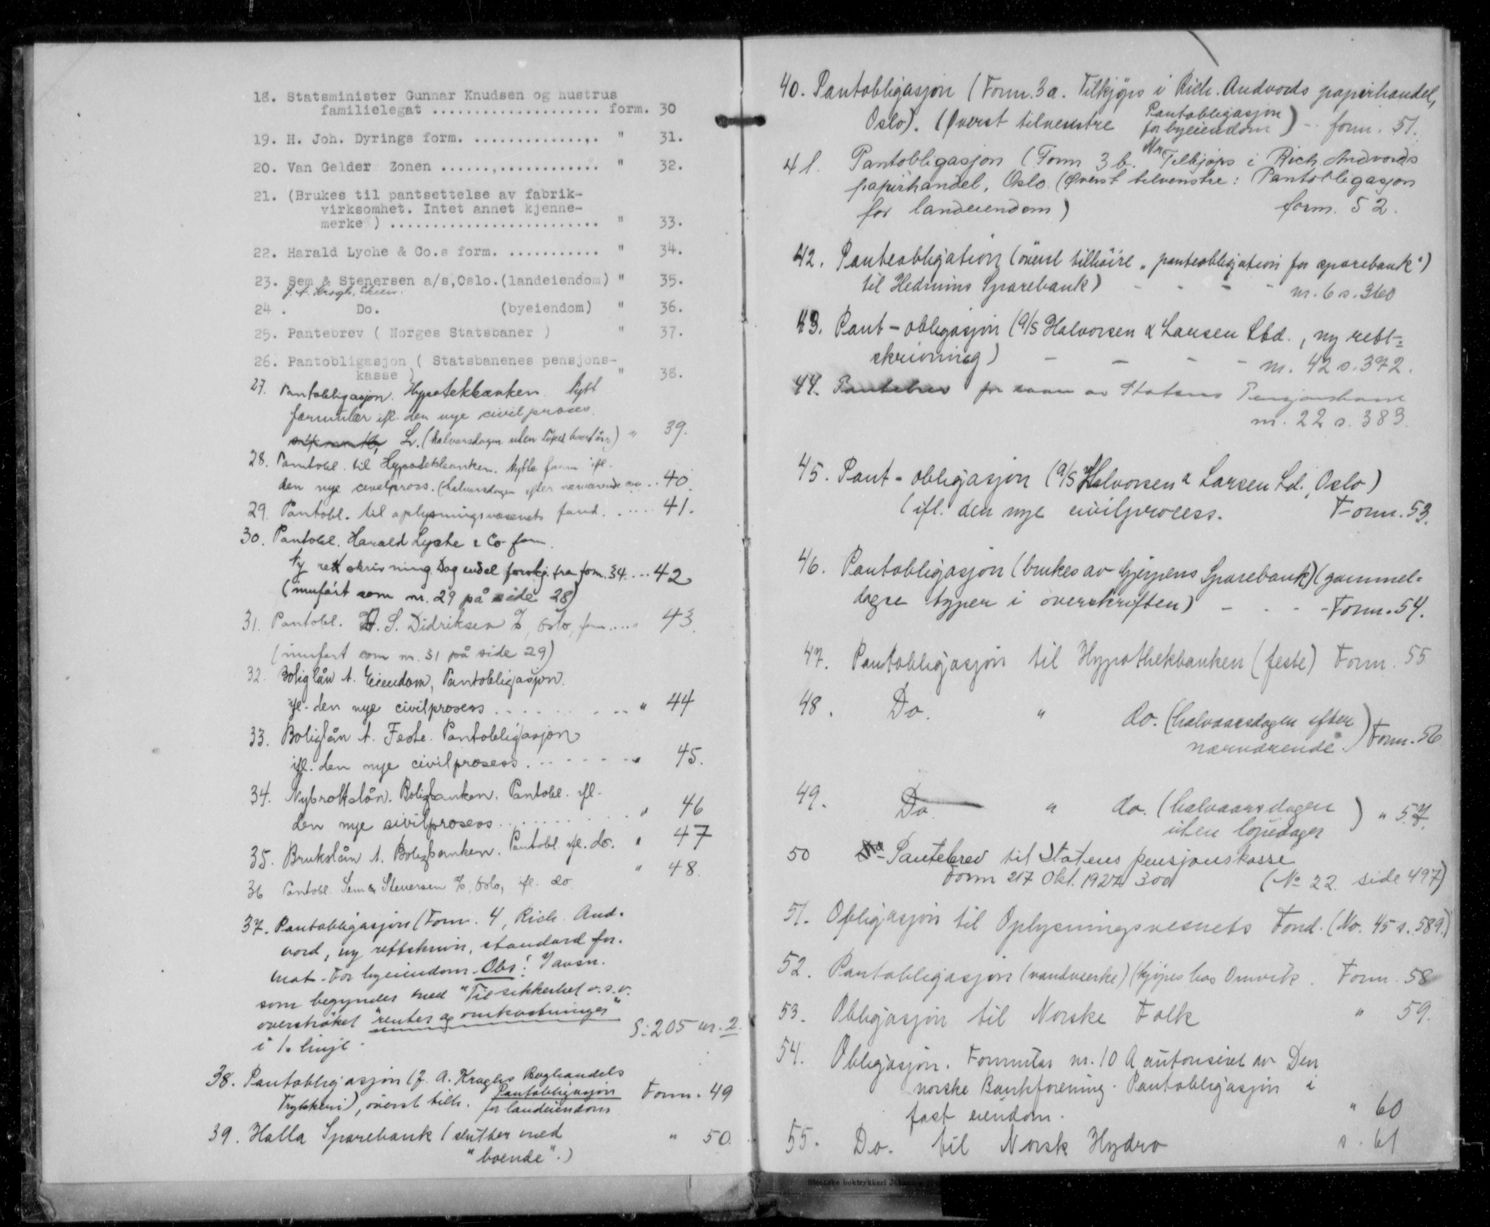 18. Statsminister Gunnar Knudsen og hustrus
familielegat .................... form. 30
19. H. Joh. Dyrings form. .............. " 31.
20. Van Gelder Zonen .................. " 32.
21. (Brukes til pantsettelse av fabrik-
virksomhet. Intet annet kjenne-
merke ) ......................... " 33.
22. Harald Lyche & Co.s form. ........... " 34.
23. Sem & Stenersen a/s,Oslo.(landeiendom) " 35.
24 . Do. (byeiendom) " 36.
25. Pantebrev ( Norges Statsbaner ) " 37.
26. Pantobligasjon ( Statsbanenes pensjons-
kasse ) " 38.
27. Pantobligasjon. Hypotekbanken. Nytt
formular ifl. den nye civilproses
L. (halvårsdagen uten) " 39.
28. Pantobl. til Hypotekbanken. Nytt form ifl.
den nye civilpross. (halvårsdagen efter nærværende .. 40.
29. Pantobl. til oplysningsvesenets fond. ..... 41.
30. Pantobl. Harald Lyche & Co form.
Ny rettskrivning fra form. 34 .... 42
(innført som nr. 29 på side 28)
31. Pantobl. S. Didriksen %, Oslo, form .... " 43.
(innført som nr. 31 på side 29)
32. Boliglån A. Eiendom, Pantobligasjon.
ifl. den nye civilprosess .......... " 44
33. Boliglån A. Feste. Pantobligasjon
ifl. den nye civilprosess ........ " 45.
34. Nybrottslån. Boligbanken. Pantobl. ifl.
den nye sivilprosess .......... " 46
35. Brukslån A. Boligbanken. Pantobl. ifl. do. " 47
36 Pantobl. Sem & Stenersen %, Oslo, ifl. do " 48.
37. Pantobligasjon (Form. 4, Rich. And-
vord, ny rettskrivn, standard for-
mat. For byeiendom. Obs!
som begynder med "Til sikkerhet o.s.v.
overstrøket "renter og omkostninger"
i 1. linje. S. 205 nr. 2.
38. Pantobligasjon (J. A. Kroghs Boghandels
Trykkeri), øverst tilh. Pantobligasjon
for landeiendom Form. 49
39. Halla Sparebank (slutter med
"boende".) " 50.
40. Pantobligasjon (Form. 3a. Tilkjøps i Rich. Andvords papirhandel,
Oslo). (Øverst tilvenstre Pantobligasjon
for byeiendom) - form. 51.
41. Pantobligasjon (Form 3 b. Tilkjøps i Rich Andvords
papirhandel, Oslo. (Øverst tilvenstre: Pantobligasjon
for landeiendom) form. 52.
42. Panteobligation (øverst tilhøire "panteobligation for sparebank")
til Hedrums Sparebank) - - - - nr. 6 s. 360
43. Pant-obligasjon (A/S Halvorsen & Larsen Ltd., ny rett-
skrivning) - - - - nr. 42 s. 372.
44. Pantebrev for av Statens Pensjonskasse
nr. 22 s. 383.
45. Pant-obligasjon (A/S Halvorsen & Larsen Ld., Oslo)
(ifl. den nye civilprocess. Form. 53.
46. Pantobligasjon (brukes av Gjerpens Sparebank) (gammel-
dagse typer i overskriften) - - - Form. 54.
47. Pantobligasjon til Hypothekbanken (feste) Form. 55
48. Do. " do. (halvaarsdagen efter
nærværende) Form. 56
49. Do. " do. (halvaarsdagen
uten løpedager) " 57.
50 Pantebrev til Statens pensjonskasse
Form 217 Okt. 1927 300 (No 22 side 497)
51. Obligasjon til Oplysningsvesenets Fond. (No. 45 s. 589.)
52. Pantobligasjon (vandmerke) (kjøpes hos Omvik. Form. 58
53. Obligasjon til Norske Folk " 59.
54. Obligasjon. Formular nr. 10 A autorisert av Den
norske Bankforening. Pantobligasjon i
fast eiendom. " 60
55. Do. til Norsk Hydro s. 61